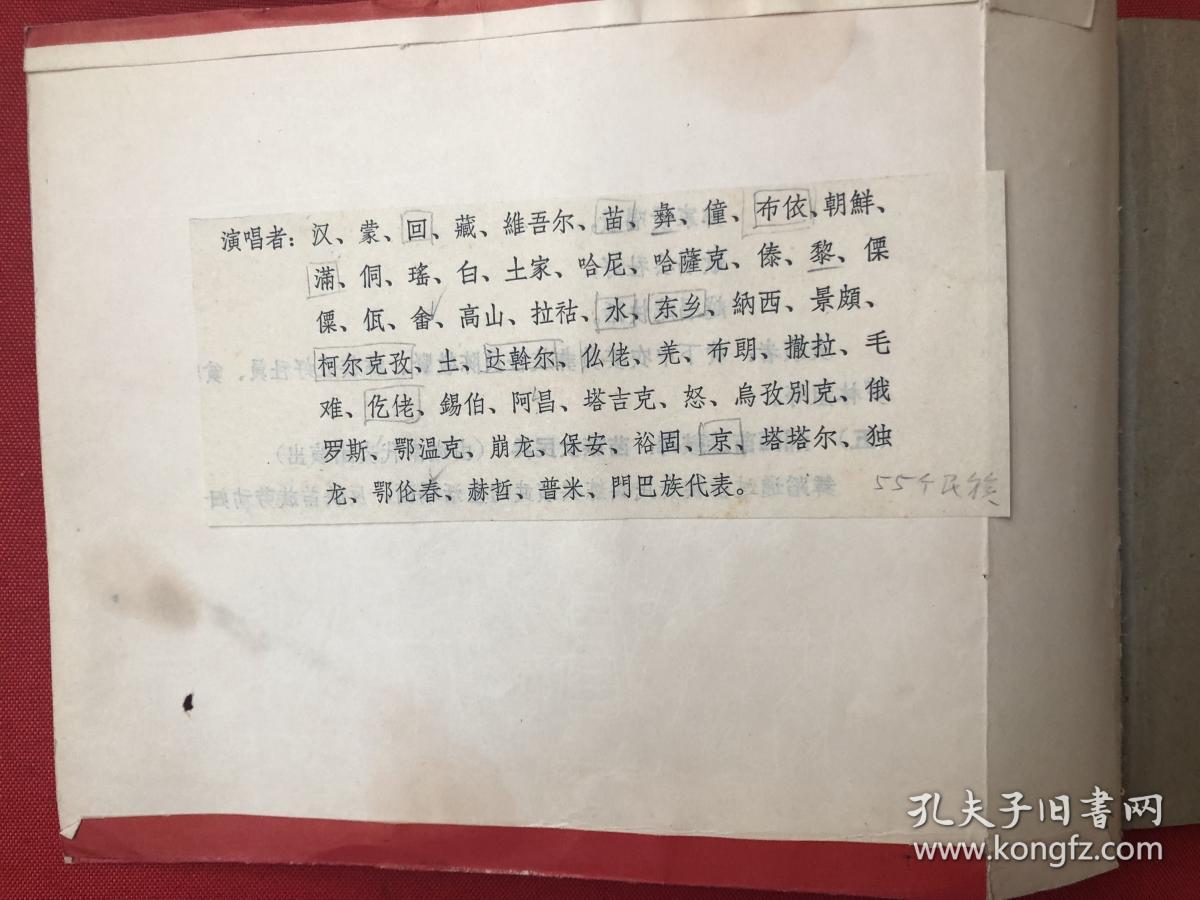 演唱者：汉、蒙、回、藏、維吾尔、苗、彝、僮、布依、朝鮮、
滿、侗、瑤、白、土家、哈尼、哈薩克、傣、黎、傈
僳、佤、畲、高山、拉祜、水、东乡、納西、景頗、
柯尔克孜、土、达斡尔、仫佬、羌、布朗、撒拉、毛
难、仡佬、錫伯、阿昌、塔吉克、怒、烏孜別克、俄
罗斯、鄂温克、崩龙、保安、裕固、京、塔塔尔、独
龙、鄂伦春、赫哲、普米、門巴族代表。
55个民族
孔夫子旧书网
www.kongfz.com